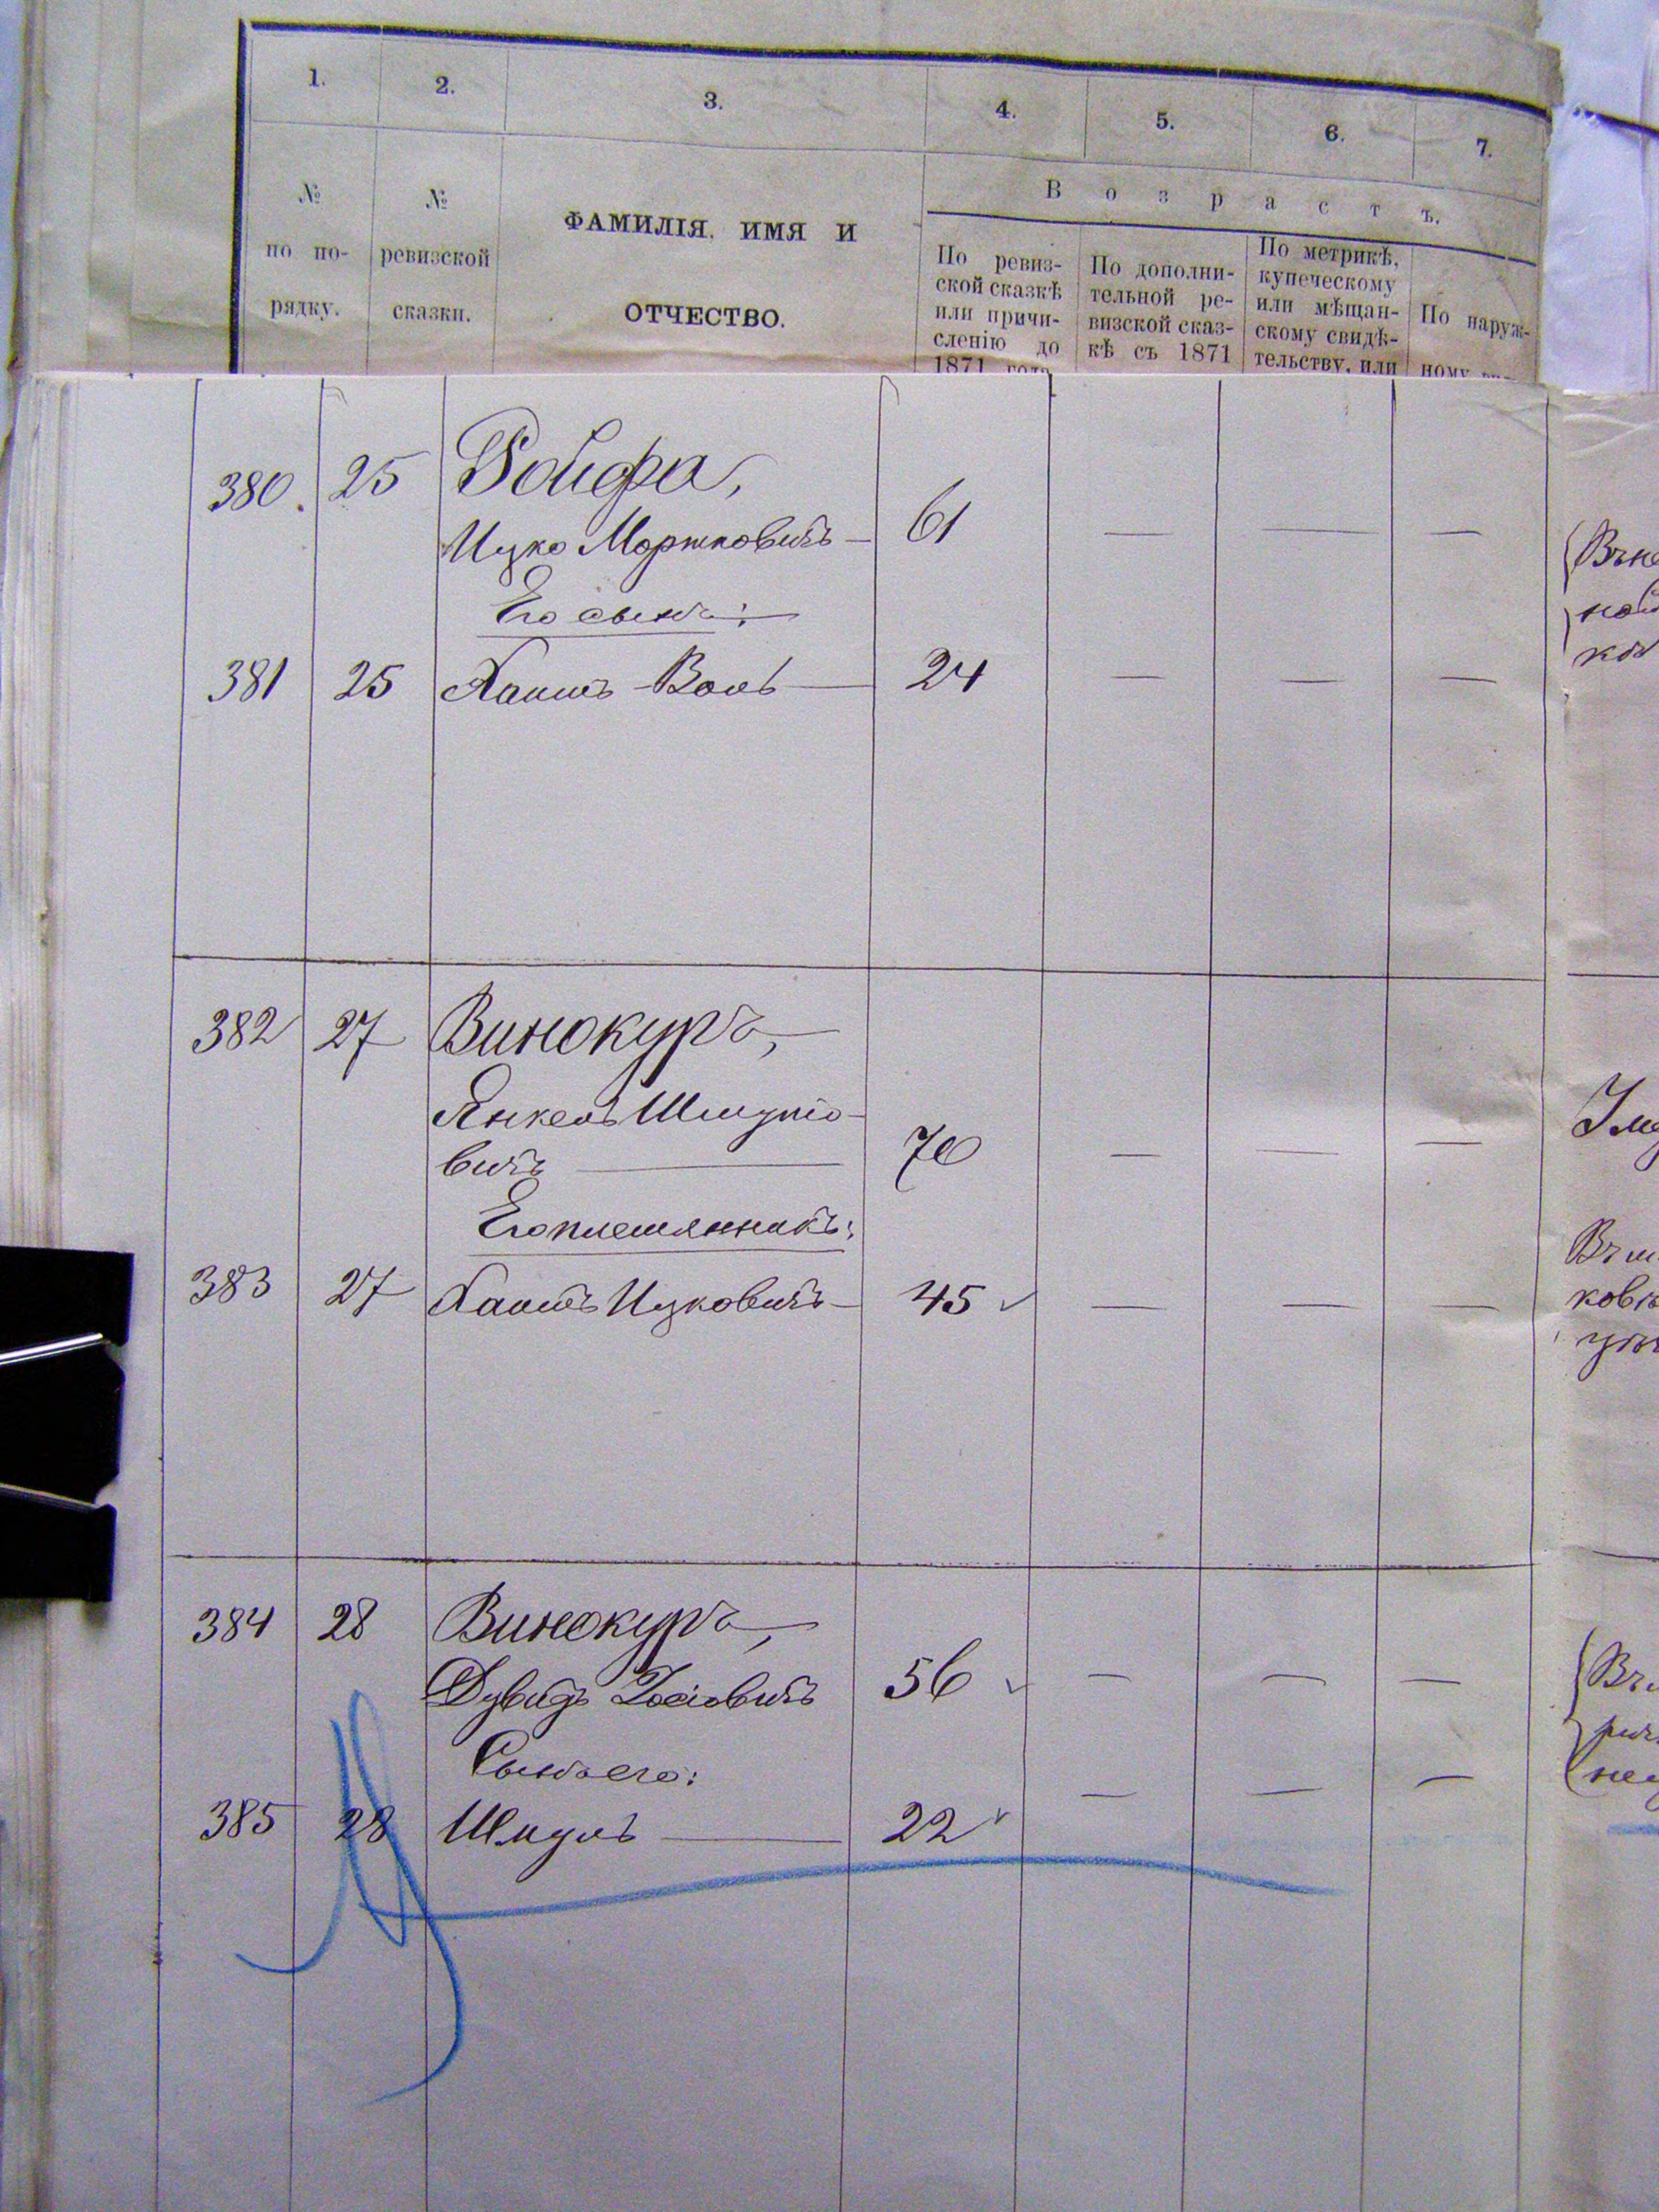 1. 2. 3. 4. 5. 6. 7.
№ по по-рядку.
№ ревизской сказки.
ФАМИЛІЯ, ИМЯ И
ОТЧЕСТВО.
Возрастъ.
По ревиз-
ской сказкѣ
или причи-
сленію до
1871 года
По дополни-
тельной ре-
визской сказ-
кѣ съ 1871
По метрикѣ,
купеческому
или мѣщан-
скому свидѣ-
тельству, или
По наруж-
ному
380. 25 Ройфа,
Ицко Моршковичъ — 61 — — —
Его сынъ:
381 25 Хаимъ-Вольъ — 24 — — —
382 27 Винокуръ,
Янкель Шмуліо-
вичъ — 70 — — —
Его племянникъ:
383 27 Хаимъ Ицковичъ — 45 — — —
384 28 Винокуръ,
Дувидъ Іосіовичъ 56 — — —
Сынъ его:
385 28 Шмуль — 22 — — —